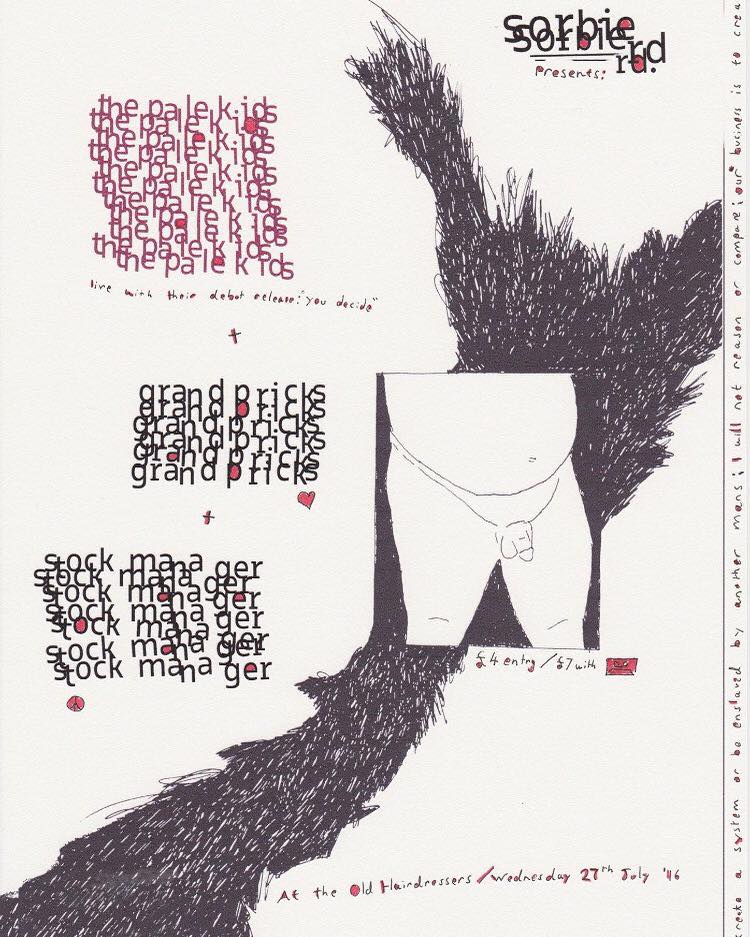 sorbie
sorbie rd
rd.
Presents:
the pale kids
the pale kids
the pale kids
the pale kids
the pale kids
the pale kids
the pale kids
the pale kids
the pale kids
the pale kids
live with their debut release: "you decide"
+
grand pricks
grand pricks
grand pricks
grand pricks
grand pricks
grand pricks
+
stock manager
stock manager
stock manager
stock manager
stock manager
stock manager
stock manager
£4 entry / £7 with
At the Old Hairdressers / Wednesday 27th July '16
create a system or be enslaved by another mans; I will not reason or compare; our business is to crea